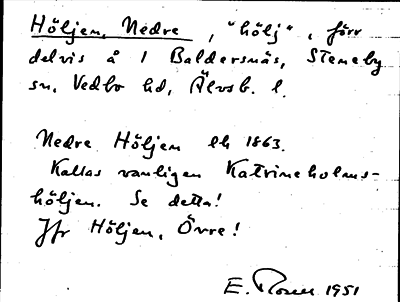 Höljen, Nedre, "hölj", förr
delvis å 1 Baldersnäs, Steneby
sn, Vedbo hd, Älvsb. l.
Nedre Höljen lk 1863.
Kallas vanligen Katrineholms-
höljen. Se detta!
Jfr Höljen, Övre!
E. 1951